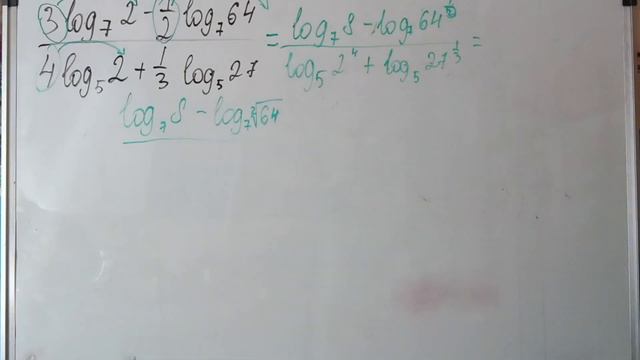 3log₇2 - 1/2 log₇64 / 4log₅2 + 1/3 log₅27 = log₇8 - log₇64^(1/2) / log₅2⁴ + log₅27^(1/3) =
log₇8 - log₇²√64